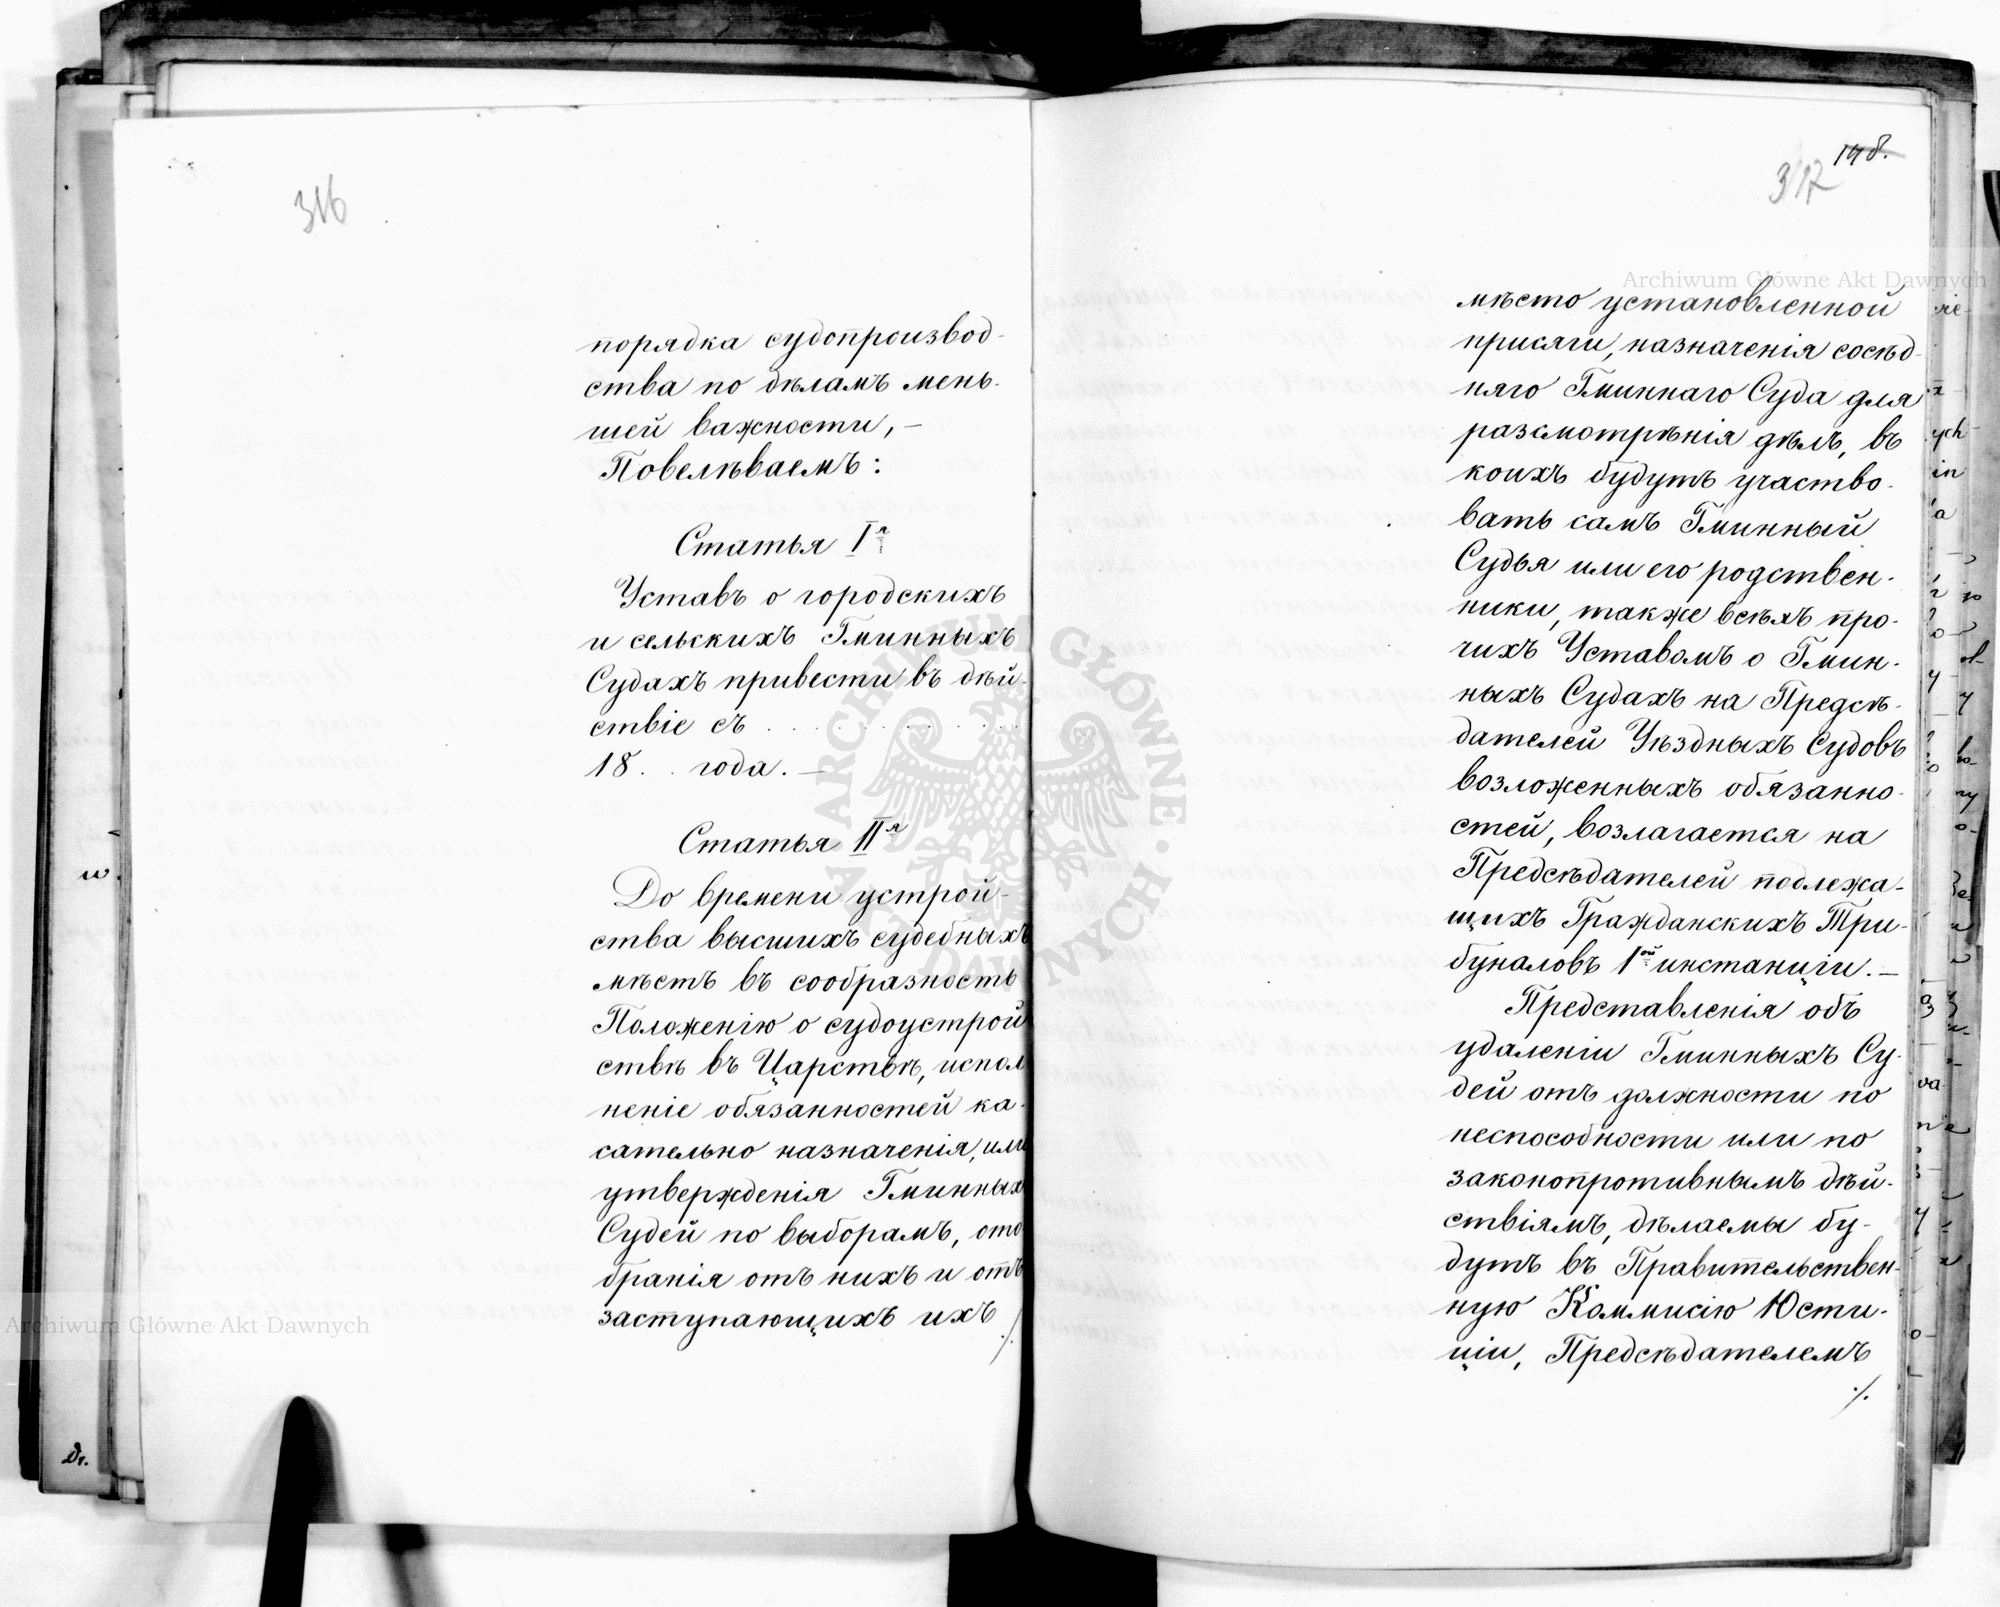 316
порядка судопроизвод-
ства по дѣламъ мень-
шей важности, —
Повелѣваемъ:
Статья Iя
Уставъ о городскихъ
и сельскихъ Гминныхъ
Судахъ привести въ дѣй-
ствіе съ . . . . . . . .
18 . . года. —
Статья IIя
До времени устрой-
ства высшихъ судебныхъ
мѣстъ въ сообразность
Положенію о судоустрой
ствѣ въ Царствѣ, испол
неніе обязанностей ка-
сательно назначенія, или
утвержденія Гминныхъ
Судей по выборамъ, ото
бранія отъ нихъ и отъ
заступающихъ ихъ
./.
148.
317
мѣсто установленной
присяги, назначенія сосѣд-
няго Гминнаго Суда для
разсмотрѣнія дѣлъ, въ
коихъ будутъ участво-
вать самъ Гминный
Судья или его родствен-
ники, также всѣхъ про-
чихъ Уставомъ о Гмин-
ныхъ Судахъ на Предсѣ-
дателей Уѣздныхъ Судовъ
возложенныхъ обязанно-
стей, возлагается на
Предсѣдателей подлежа-
щихъ Гражданскихъ Три-
буналовъ 1ой инстанціи. —
Представленія объ
удаленіи Гминныхъ Су-
дей отъ должности по
неспособности или по
законопротивнымъ дѣй-
ствіямъ, дѣлаемы бу-
дутъ въ Правительствен-
ную Коммисію Юсти-
ціи, Предсѣдателемъ
./.
Archiwum Główne Akt Dawnych
Archiwum Główne Akt Dawnych
ARCHIWUM GŁÓWNE AKT DAWNYCH